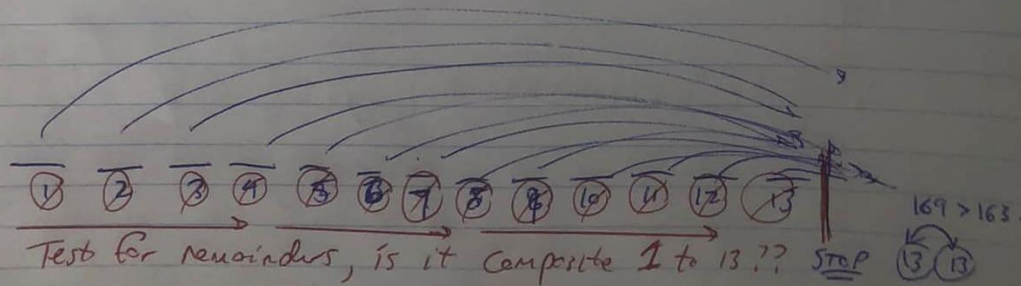 1 2 3 4 5 6 7 8 9 10 11 12 13
169 > 163
Test for remainders, is it composite 1 to 13?? STOP 13 13